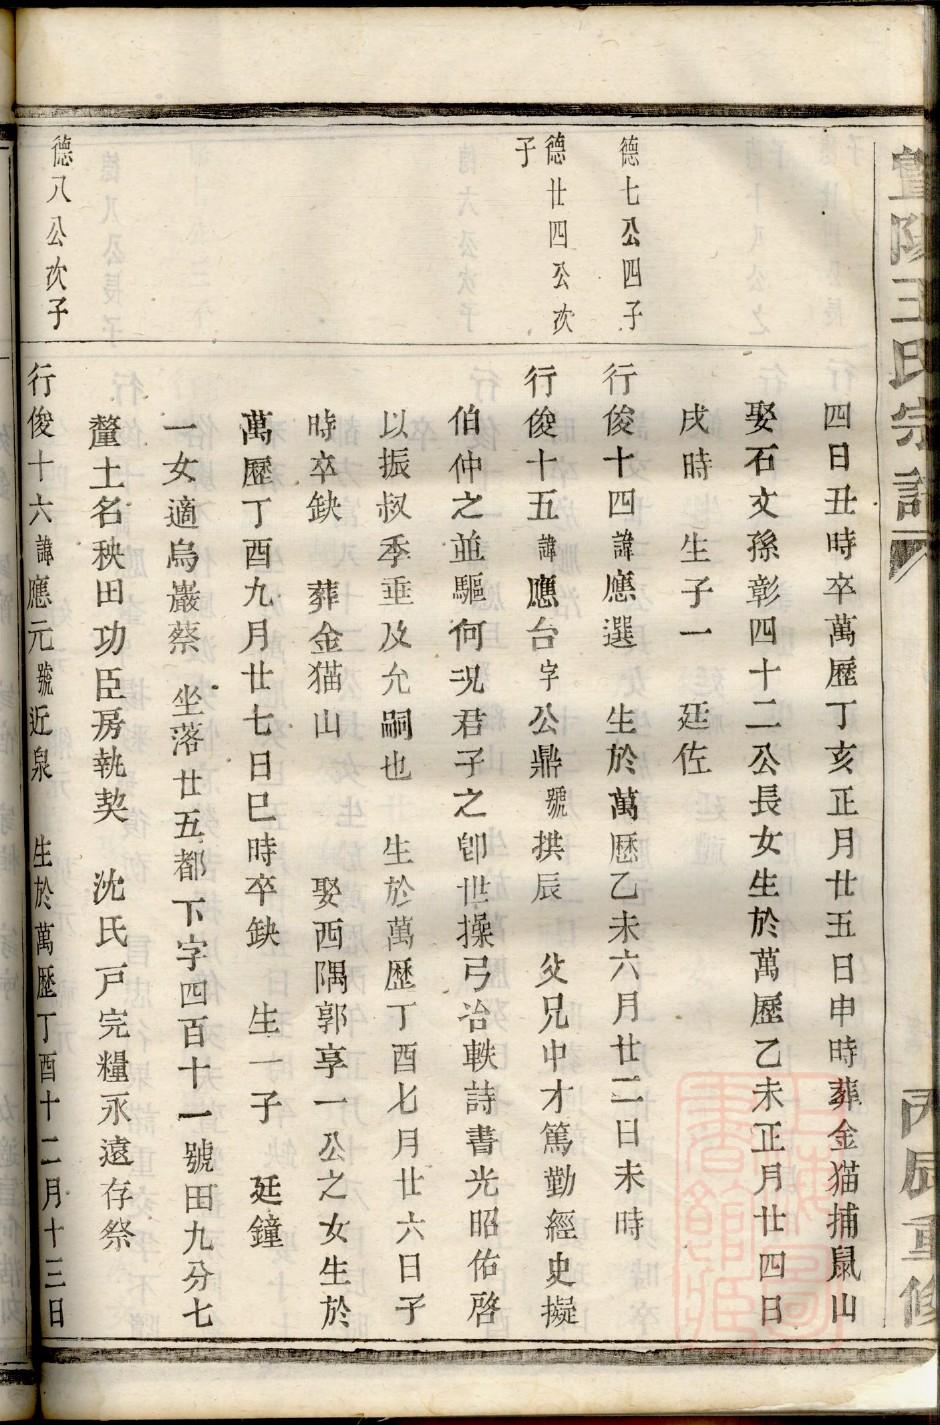 暨陽王氏宗譜
丙辰重修
四日丑時卒萬歷丁亥正月廿五日申時葬金猫捕鼠山
娶石文孫彰四十二公長女生於萬歷乙未正月廿四日
戌時 生子一 廷佐
德七公四子
行俊十四諱應選 生於萬歷乙未六月廿二日未時
德廿四公次子
行俊十五諱應台字公鼎號拱辰 父兄中才篤勤經史擬
伯仲之並驅何況君子之卽世操弓冶軼詩書光昭佑啓
以振叔季垂及允嗣也 生於萬歷丁酉七月廿六日子
時卒缺 葬金猫山 娶西隅郭享一公之女生於
萬歷丁酉九月廿七日巳時卒缺 生一子 廷鐘
一女適烏巖蔡 坐落廿五都下字四百十一號田九分七
釐土名秧田功臣房執契 沈氏戸完糧永遠存祭
德八公次子
行俊十六諱應元號近泉 生於萬歷丁酉十二月十三日